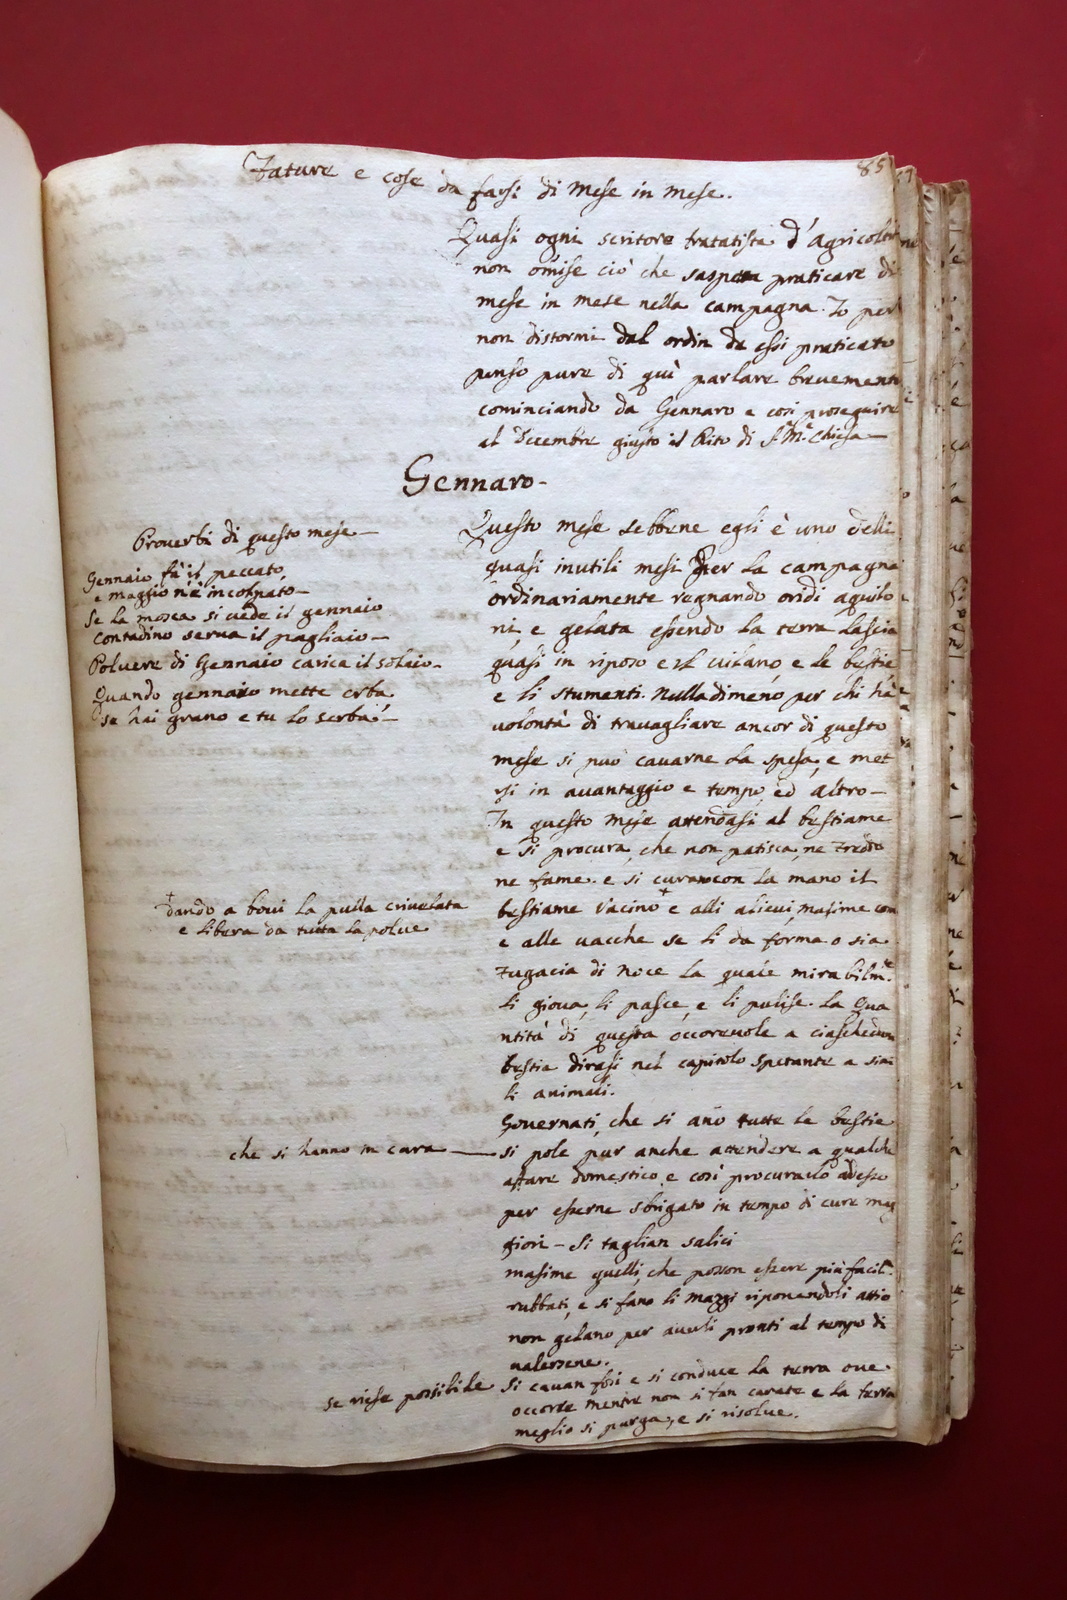 Fature e cose da farsi di Mese in Mese.
85
Quasi ogni scritore tratatista d'Agricoltu
non omise ciò che saspetta praticare di
mese in mese nella campagna. Io per
non distormi dal ordin da essi praticato
penso pure di quì parlare brevement
cominciando da Gennaro e così proseguire
al Decembre giusto il Rito di S.ª M.ª Chiesa—
Gennaro-
Proverbi di questo mese—
Gennaio fà il peccato,
e maggio n'è incolpato—
Se la mosca si vede il gennaio
contadino serva il pagliaio—
Polvere di Gennaio carica il solaio-
Quando gennaio mette erba,
se hai grano e tu lo serba—
Questo mese sebbene egli è uno delli
quasi inutili mesi per la campagna
ordinariamente regnando oridi aquilo
ni, e gelata essendo la terra lascia
quasi in riposo e il vilano, e le bestie
e li stumenti. Nulladimeno per chi hà
volontà di travagliare ancor di questo
mese si può cavarne la spesa, e met
si in avantaggio e tempo, ed altro—
In questo mese attendasi al bestiame
e si procura, che non patisca, ne freddo
ne fame. e si curan con la mano il
bestiame Vacino + e alli alievi, masime con
+ dando a bovi la pulla crivelata
e libera da tutta la polve
e alle vacche se li da forma o sia
fugacia di noce la quale mirabilm.te
li giova, li pasce, e li pulise. La Qua
ntità di questa occorevole a ciaschedun
bestia dirasi nel capitolo spetante a sim
li animali.
Governati, che si ano tutte le bestie
che si hanno in cura — si pole pur anche attendere a qualche
affare domestico e così procurarlo adesso
per esserne sbrigato in tempo di cure mag
giori — Si taglian salici
masime quelli, che posson essere più facil.e
rubbati, e si fano li mazzi riponendoli attio
non gelano per averli pronti al tempo di
valersene.
se riese possibile Si cavan fosi e si conduce la terra ove
occorre mentre non si fan carate e la terra
meglio si purga, e si risolve.